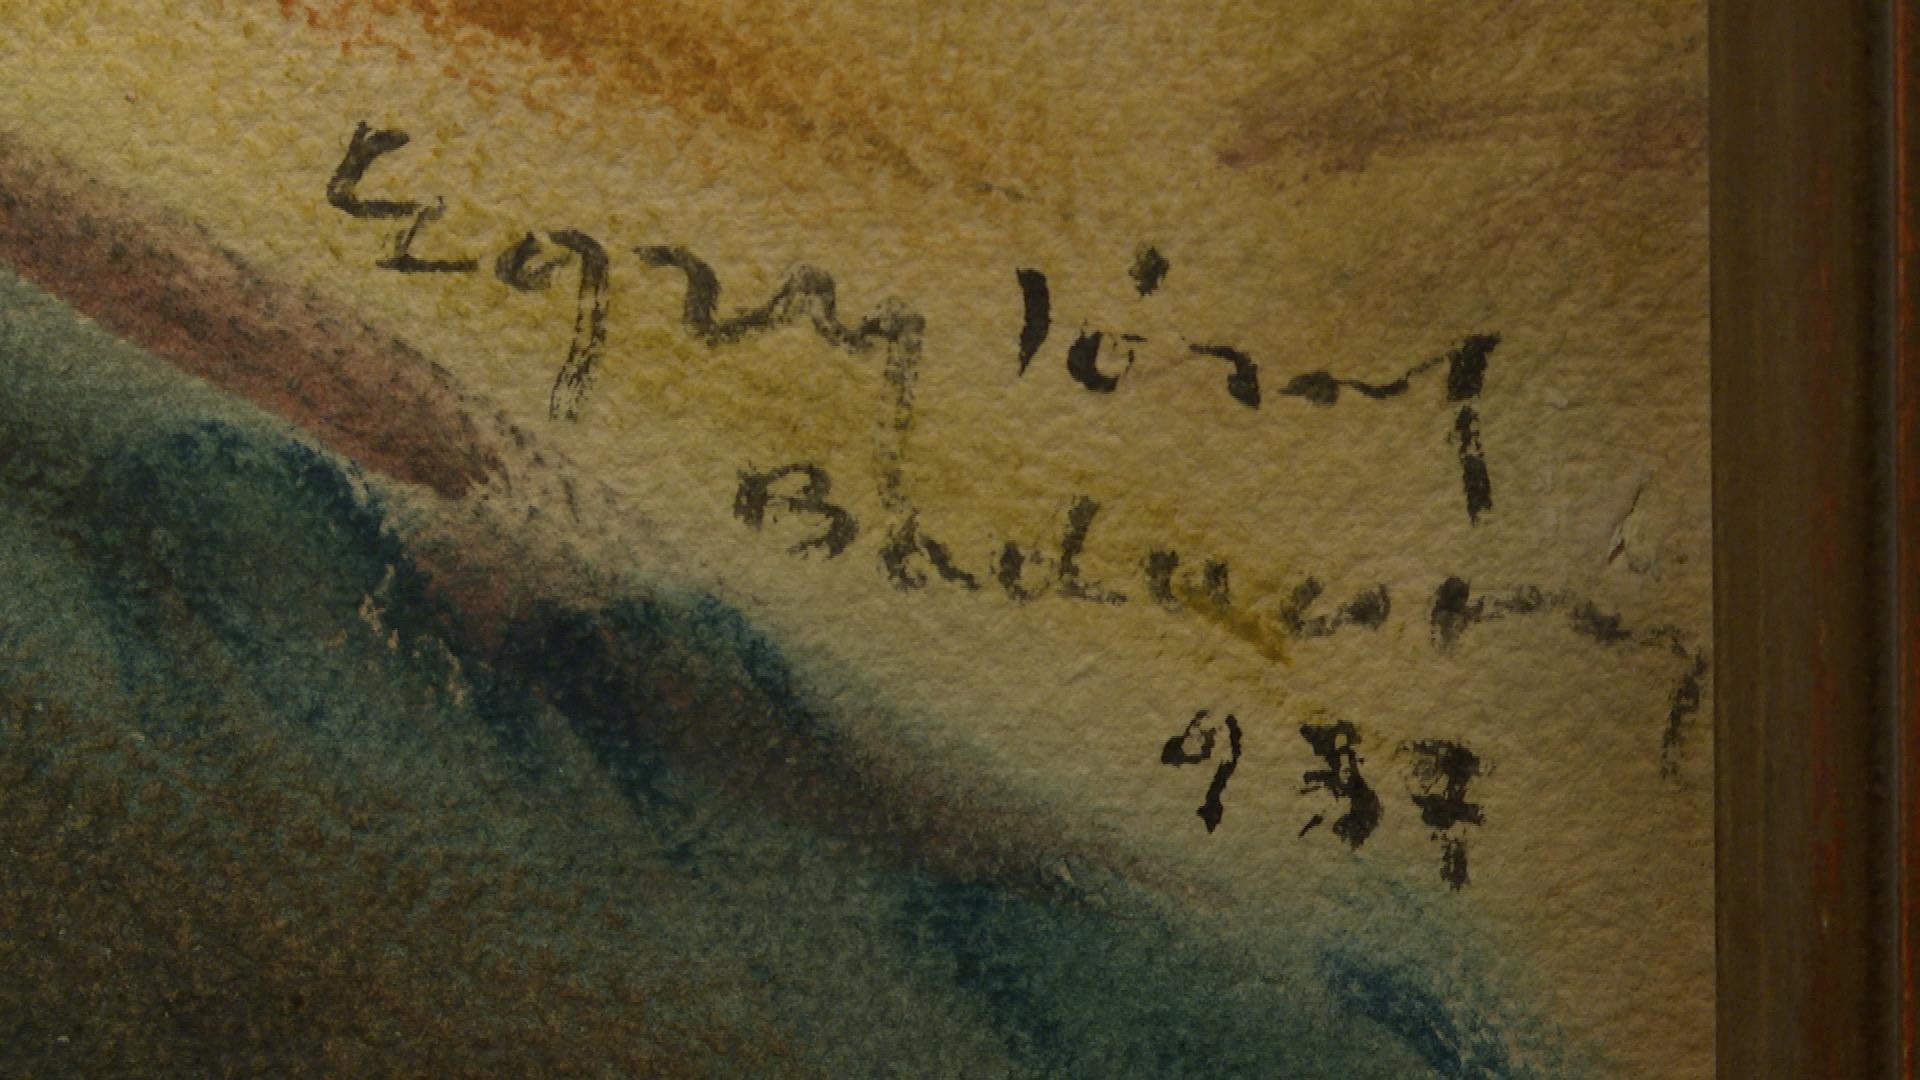 Egry József
Badacsony
937